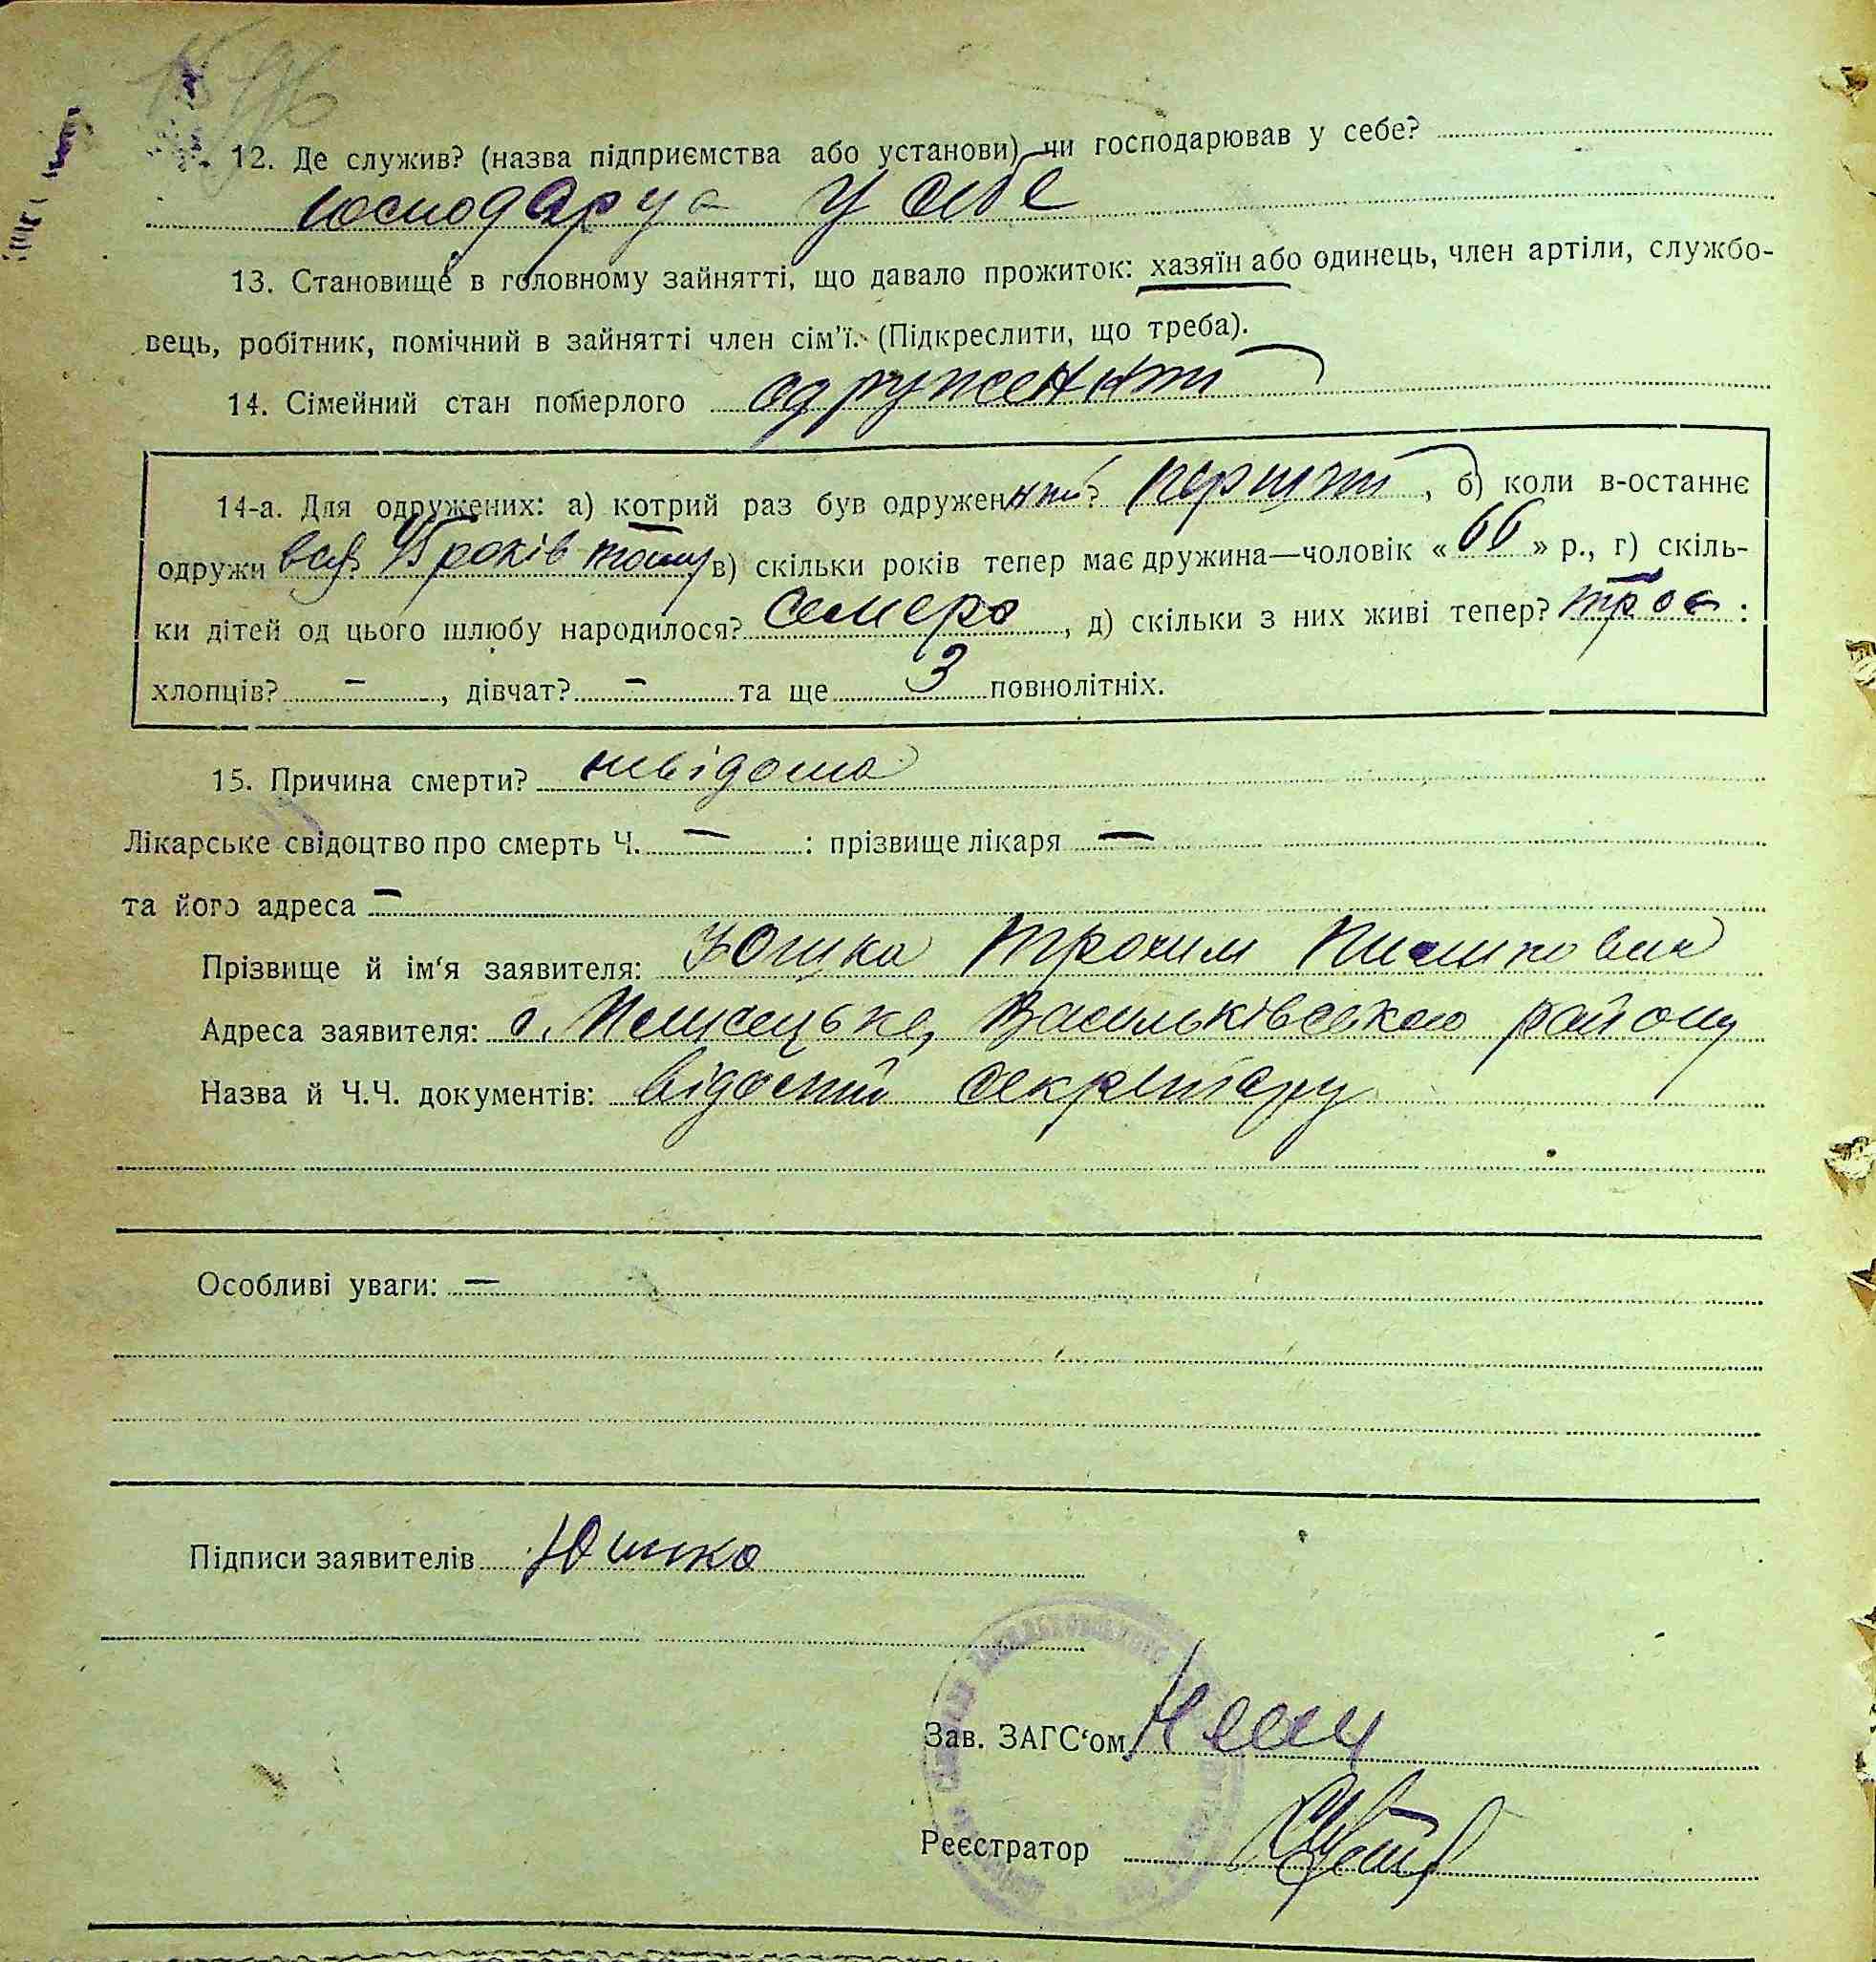 12. Де служив? (назва підприємства або установи) чи господарював у себе?
господарує у себе
13. Становище в головному зайнятті, що давало прожиток: хазяїн або одинець, член артіли, службо-
вець, робітник, помічний в зайнятті член сім'ї. (Підкреслити, що треба).
14. Сімейний стан померлого одружений
14-а. Для одружених: а) котрий раз був одружений? перший, б) коли в-останнє
одружився? 45 років тому в) скільки років тепер має дружина—чоловік «66» р., г) скіль-
ки дітей од цього шлюбу народилося? семеро, д) скільки з них живі тепер? троє:
хлопців? -, дівчат? - та ще 3 повнолітніх.
15. Причина смерти? невідома
Лікарське свідоцтво про смерть Ч. — : прізвище лікаря —
та його адреса —
Прізвище й ім'я заявителя: Юшко Трохим
Адреса заявителя: с. Васильківського району
Назва й Ч.Ч. документів: відомий секретару
Особливі уваги: —
Підписи заявителів Юшко
Зав. ЗАГС'ом
Реєстратор